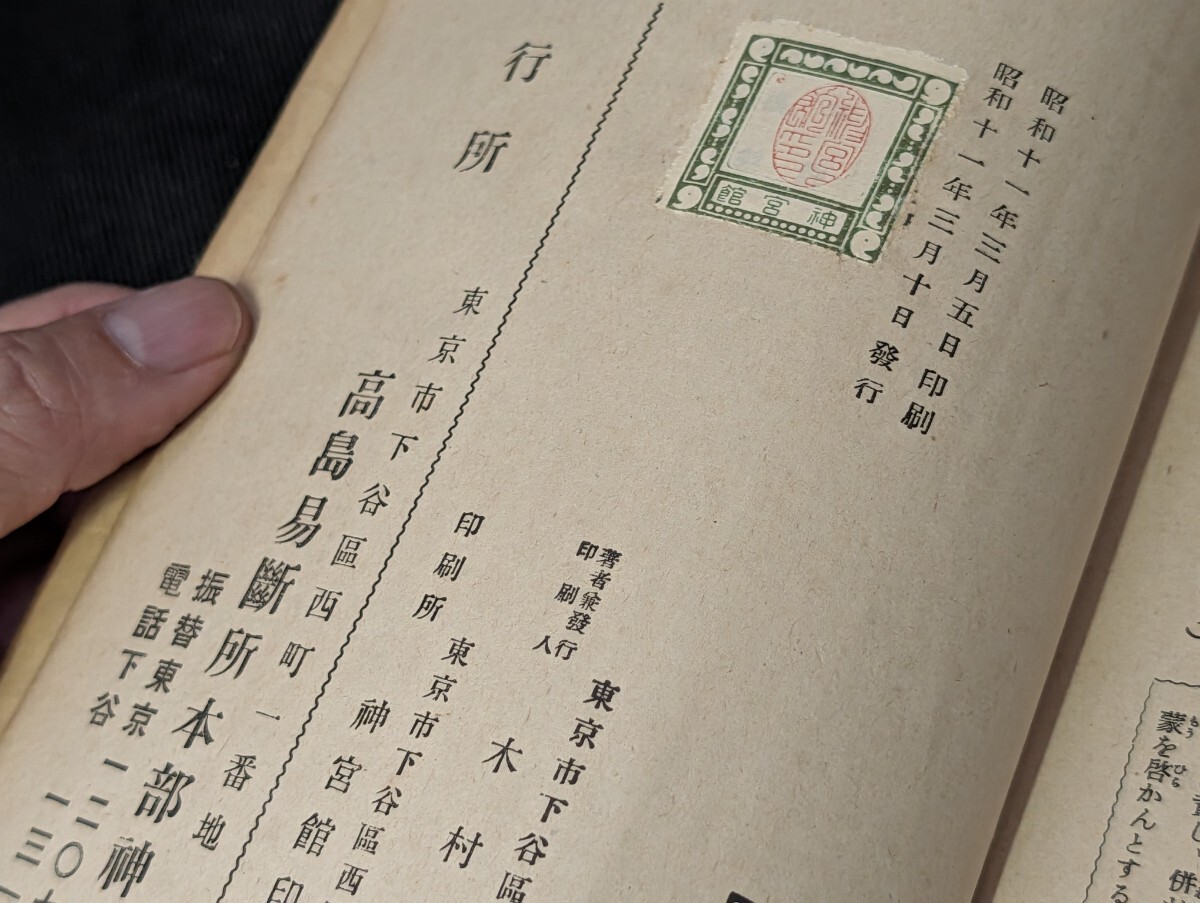 昭和十一年三月五日印刷
昭和十一年三月十日發行
神宮館
著者兼發行
印刷人
東京市下谷區
木村
印刷所
東京市下谷區西
神宮館印
行所
東京市下谷區西町一番地
高島易斷所本部神
振替東京一二〇
電話下谷一三
蒙を啓かんとする
もう
ひら
併